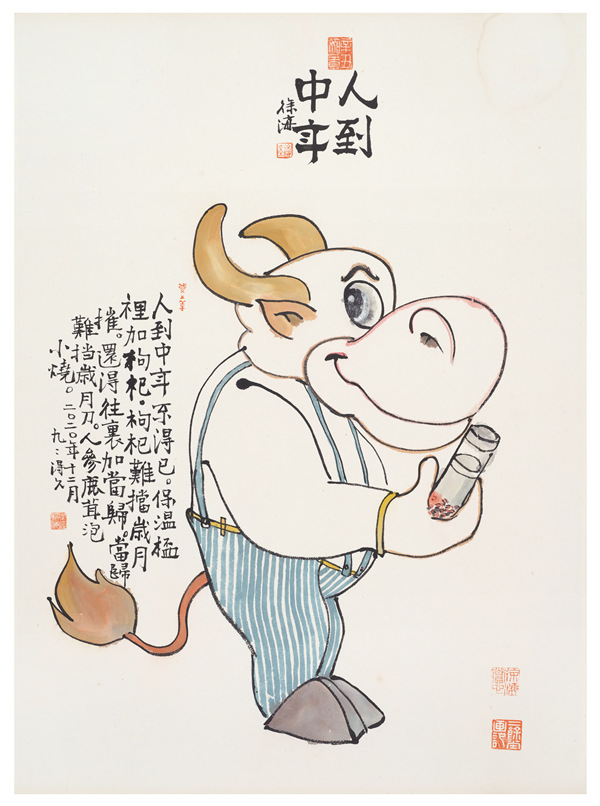 人到
中年
徐
人到中年不得已。保温
裡加枸杞。枸杞難擋歲月
摧。還得往裏加當歸。當歸
難挡歲月刀。人參鹿茸泡
小燒。二〇二〇年十二月